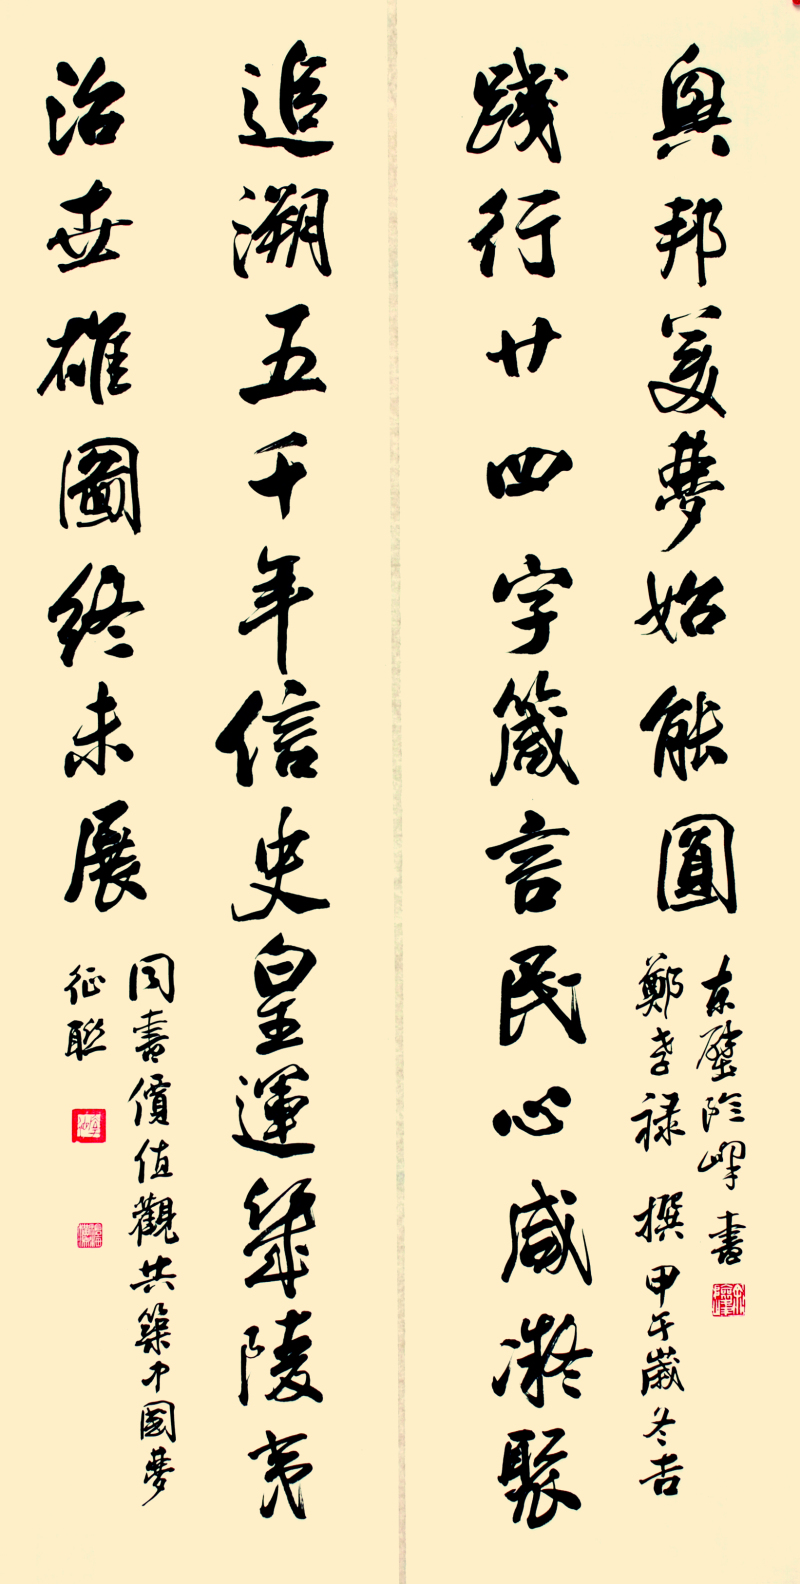 追溯五千年信史皇運幾陵夷
治世雄圖終未展
同書價值觀共築中國夢
征聯
踐行廿四字箴言民心咸凝聚
興邦美夢始能圓
鄭孝禄 撰 甲午歲冬吉
东壁 書